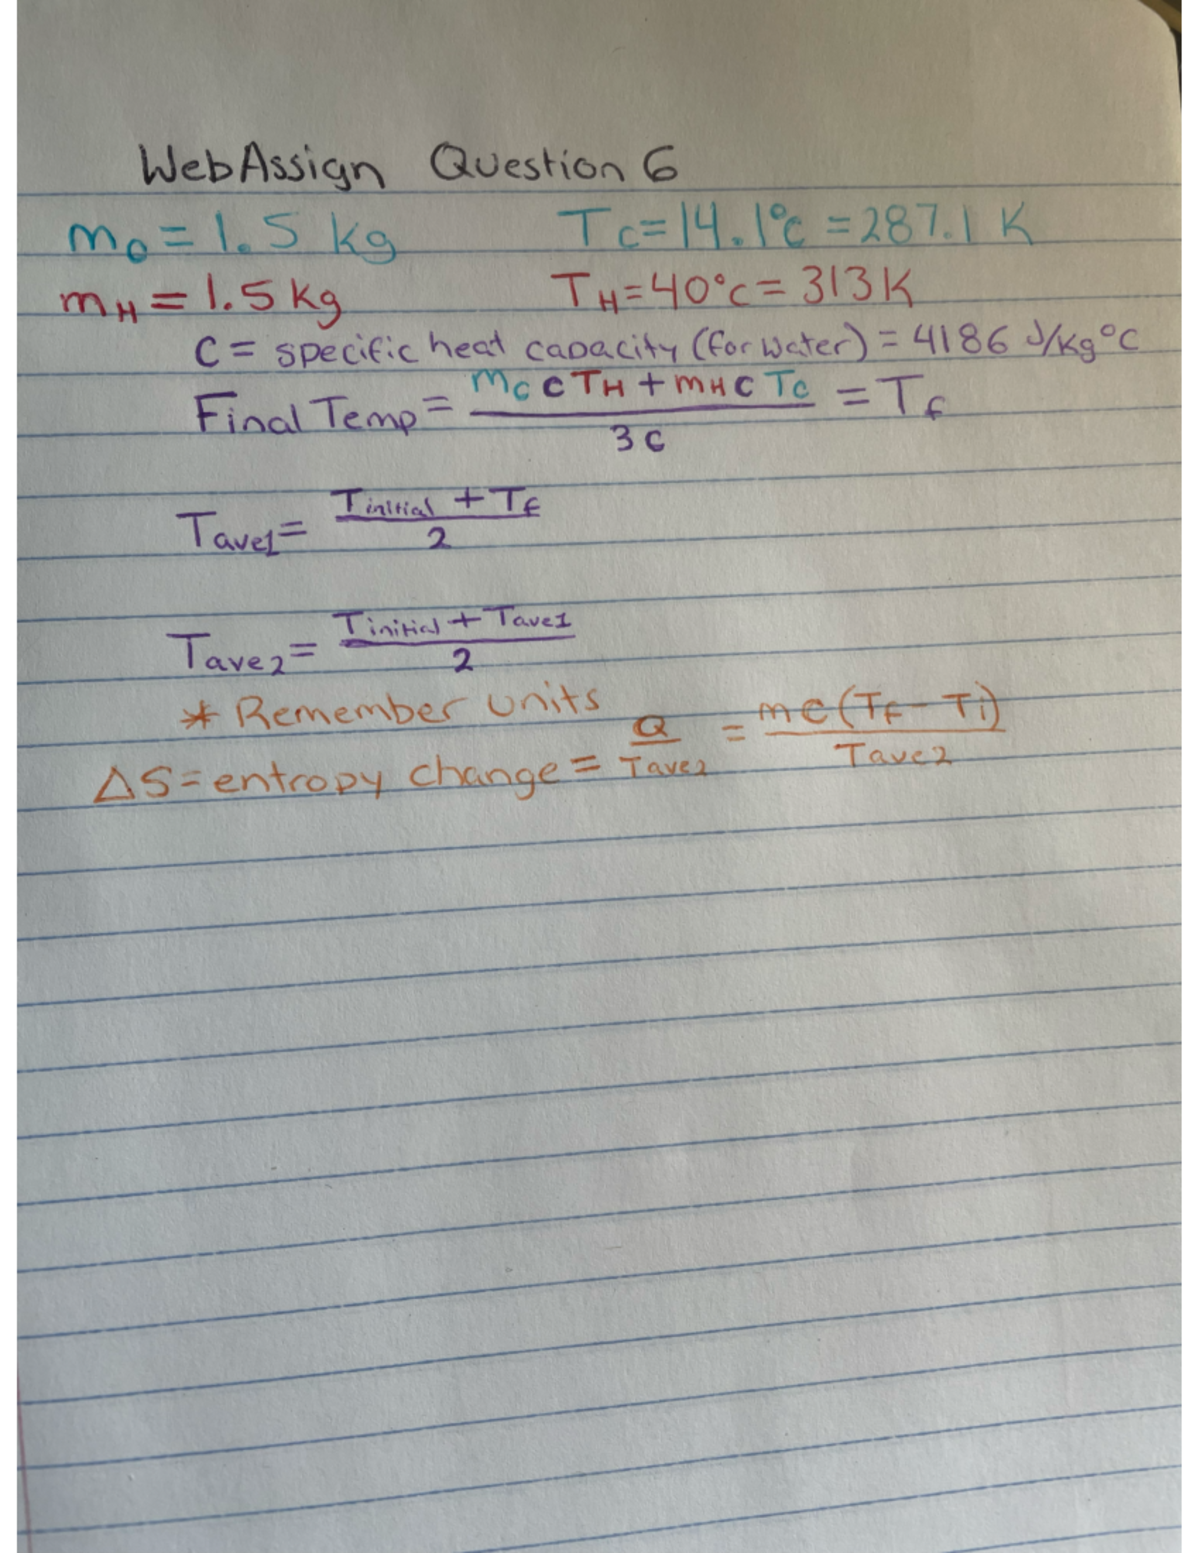 WebAssign Question 6
mo = 1.5 kg Tc = 14.1°c = 287.1 K
mH = 1.5 kg TH = 40°c = 313 K
C = specific heat capacity (for water) = 4186 J/kg°C
Final Temp = mc c TH + mH c Tc / 3 c = Tf
Tave1 = Tinitial + Tf / 2
Tave2 = Tinitial + Tave1 / 2
* Remember units
ΔS = entropy change = Q / Tave2 = mc(Tf - Ti) / Tave2